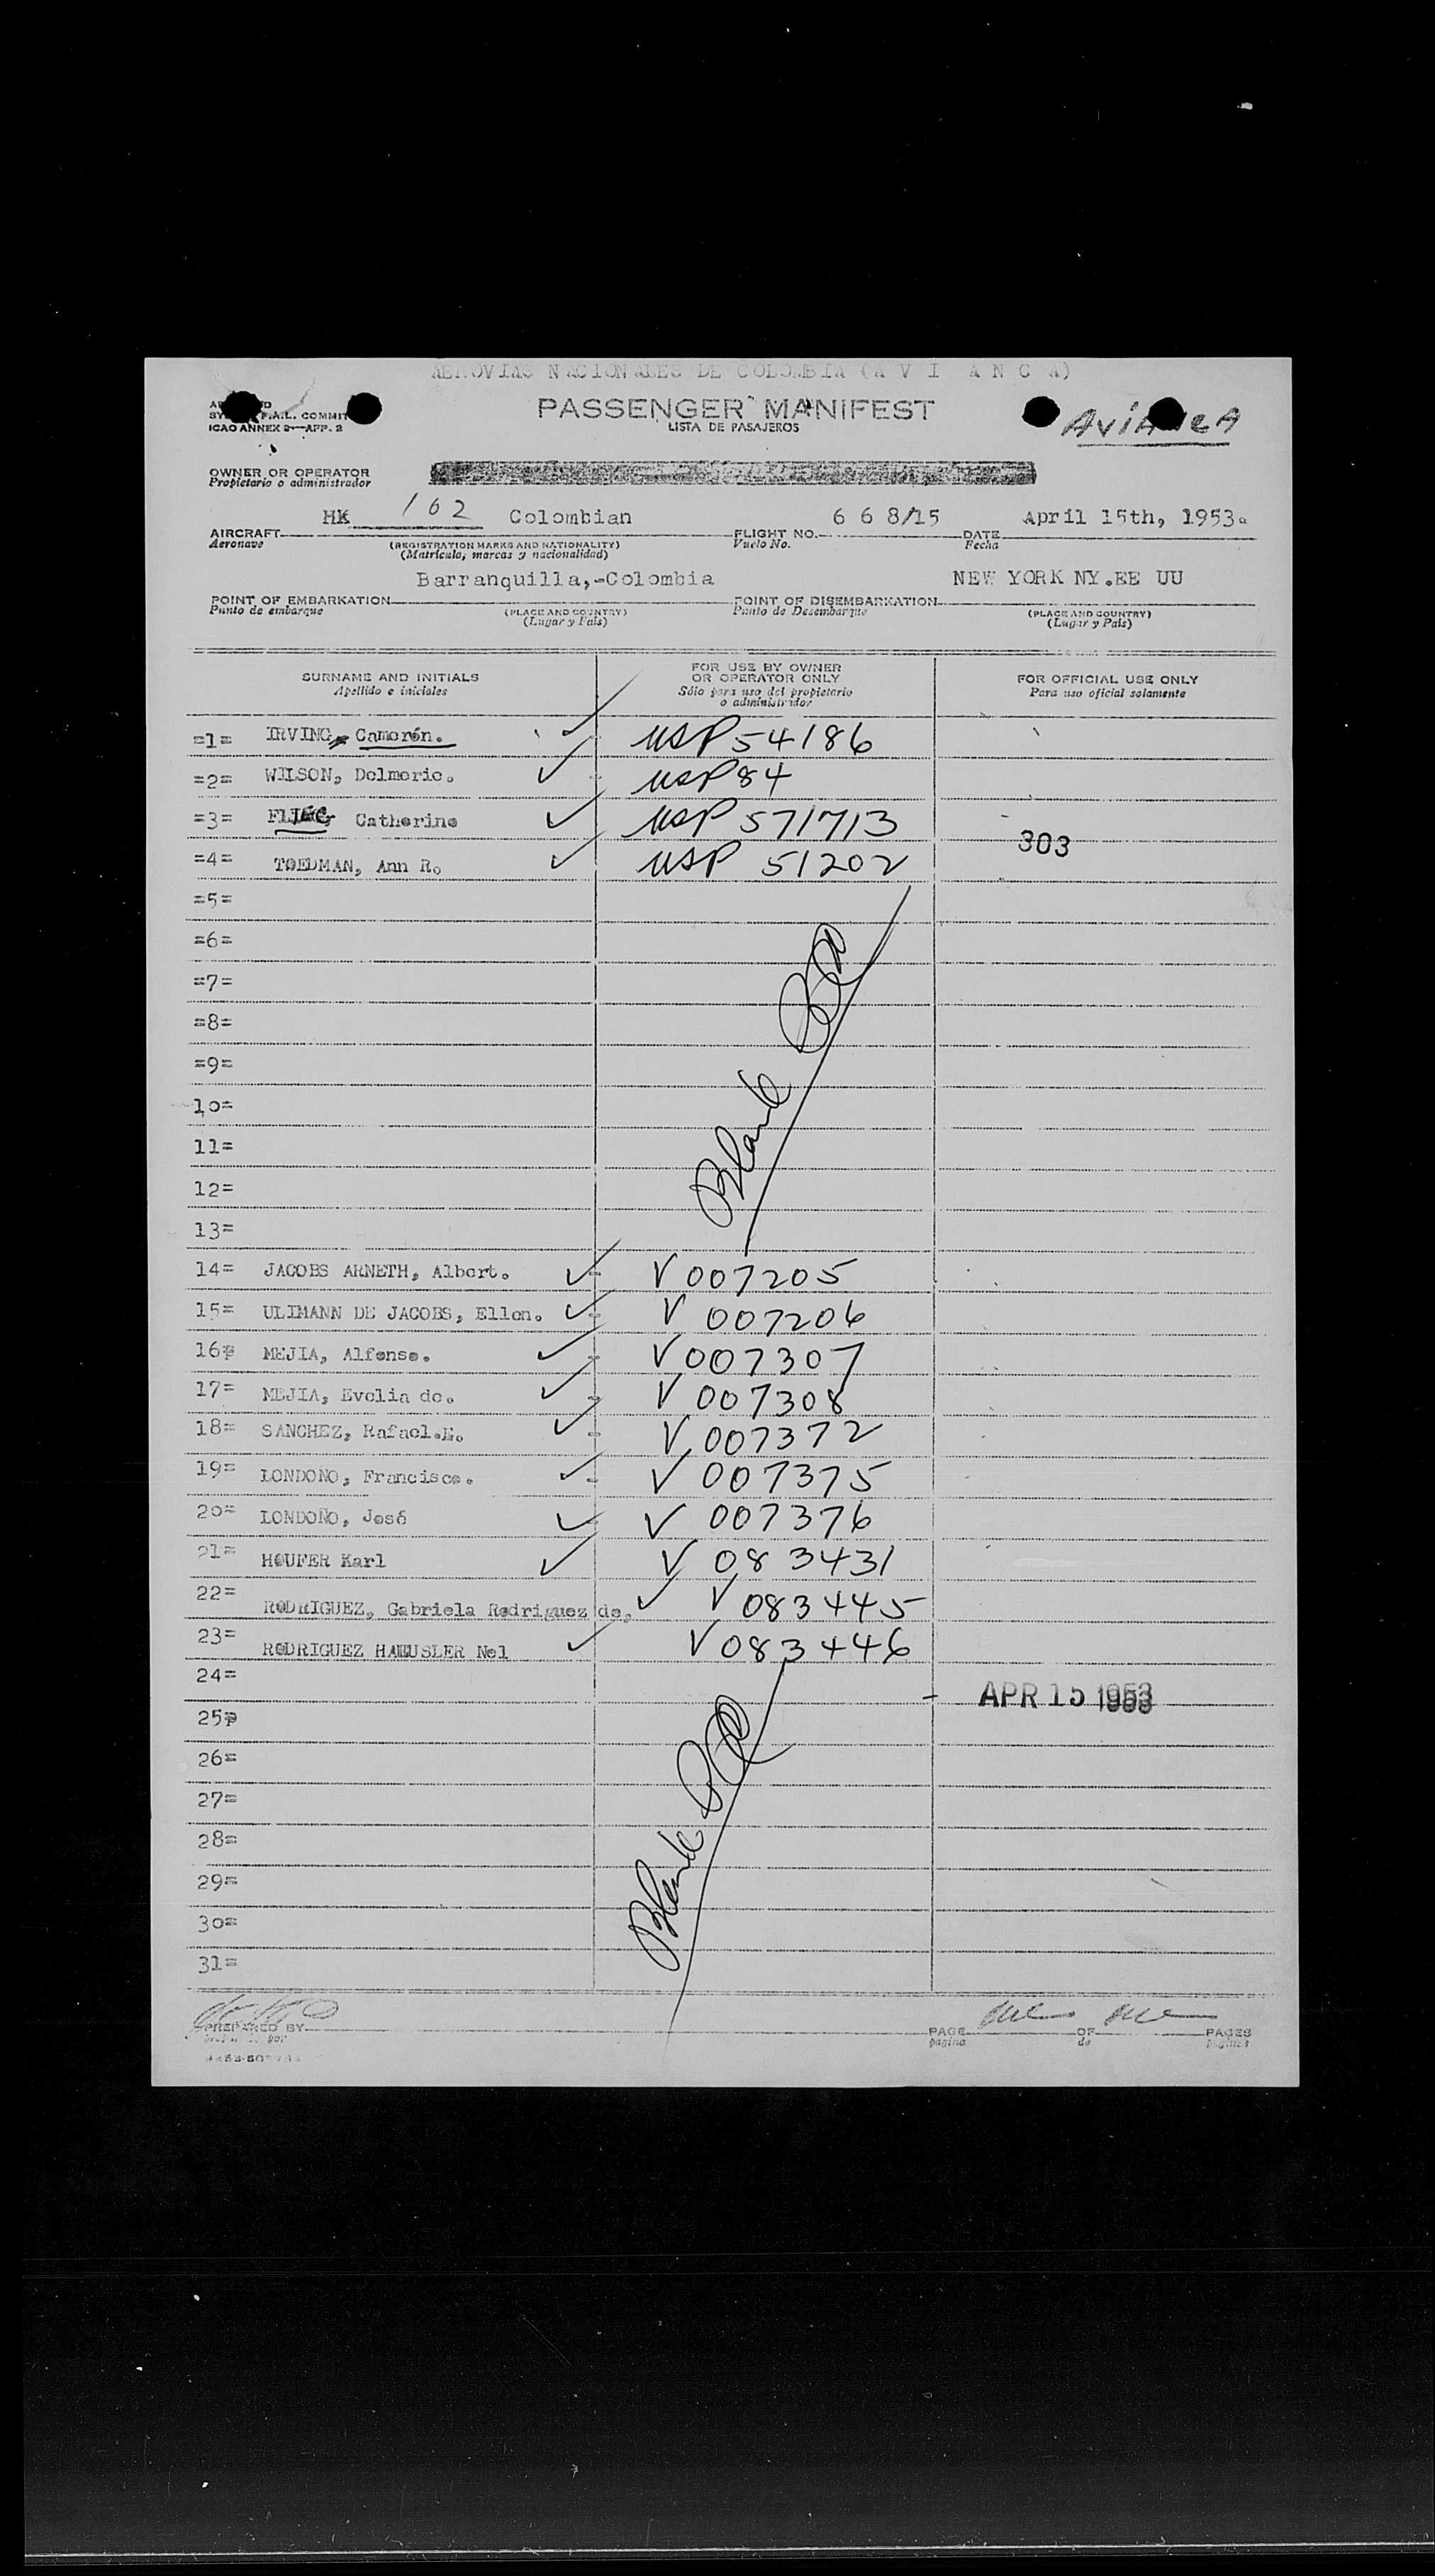 AEROVIAS NACIONALES DE COLOMBIA (A V I A N C A)
PASSENGER MANIFEST
LISTA DE PASAJEROS
F.A.L. COMMIT
ICAO ANNEX 9—APP. 2
AVIANCA
OWNER OR OPERATOR
Propietario o administrador
HK 162 Colombian 6 6 8/15 April 15th, 1953.
AIRCRAFT FLIGHT NO. DATE
Aeronave (REGISTRATION MARKS AND NATIONALITY) Vuelo No. Fecha
(Matrícula, marcas y nacionalidad)
Barranquilla,-Colombia NEW YORK NY.EE UU
POINT OF EMBARKATION POINT OF DISEMBARKATION
Punto de embarque (PLACE AND COUNTRY) Punto de Desembarque (PLACE AND COUNTRY)
(Lugar y País) (Lugar y País)
SURNAME AND INITIALS FOR USE BY OWNER OR OPERATOR ONLY FOR OFFICIAL USE ONLY
Apellido e iniciales Sólo para uso del propietario o administrador Para uso oficial solamente
=1= IRVING, Camerón. USP 54186
=2= WILSON, Delmeric. USP 84
=3= Catherine USP 571713
303
=4= TOEDMAN, Ann R. USP 51202
=5=
=6=
=7=
=8=
=9=
10=
11=
12=
13=
Blank
14= JACOBS ARNETH, Albert. V 007205
15= ULIMANN DE JACOBS, Ellen. V 007206
16= MEJIA, Alfonso. V 007307
17= MEJIA, Evelia de. V 007308
18= SANCHEZ, Rafael.E. V 007372
19= LONDOÑO, Francisco. V 007375
20= LONDOÑO, José V 007376
21= HOUFER Karl V 083431
22= RODRIGUEZ, Gabriela Rodriguez de, V 083445
23= RODRIGUEZ HAEUSLER Nel V 083446
24=
APR 15 1953
25=
26=
27=
28=
29=
30=
31=
Blank
PREPARED BY PAGE one OF one PAGES
por página de páginas